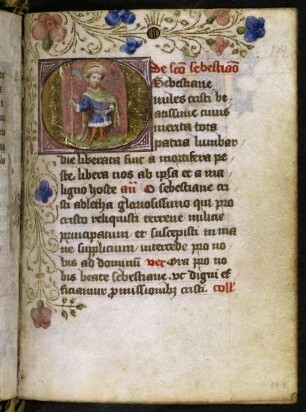 De sco sebestiano
Sebestiane
miles cristi be
atissime cuius
merita tota
patria lumbar
die liberata fuit a mortifera pe
ste. libera nos ab ipsa et a ma
ligno hoste an O sebestiane cri
sti athleta gloriosissime qui pro
cristo reliquisti terrene milicie
principatum et suscepisti in ma
ne supplicium intercede pro no
bis ad dominum vers Ora pro no
bis beate sebestiane. vt digni ef
ficiamur promissionibz cristi. coll